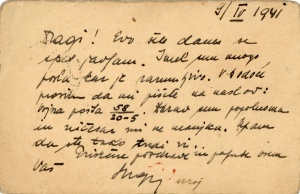 5/IV 1941
Dragi! Evo šta danas se
opet javljam. Imel sem mnogo
posla kar je razumljivo. V bodoče
prosim da mi pišete na naslov:
Vojna pošta 58/20-5. Zdrav sem popolnoma
in ničesar mi ne manjka. Upam
da ste tako tudi vi.
Prisrčne pozdrave in poljube vsem
Vaš